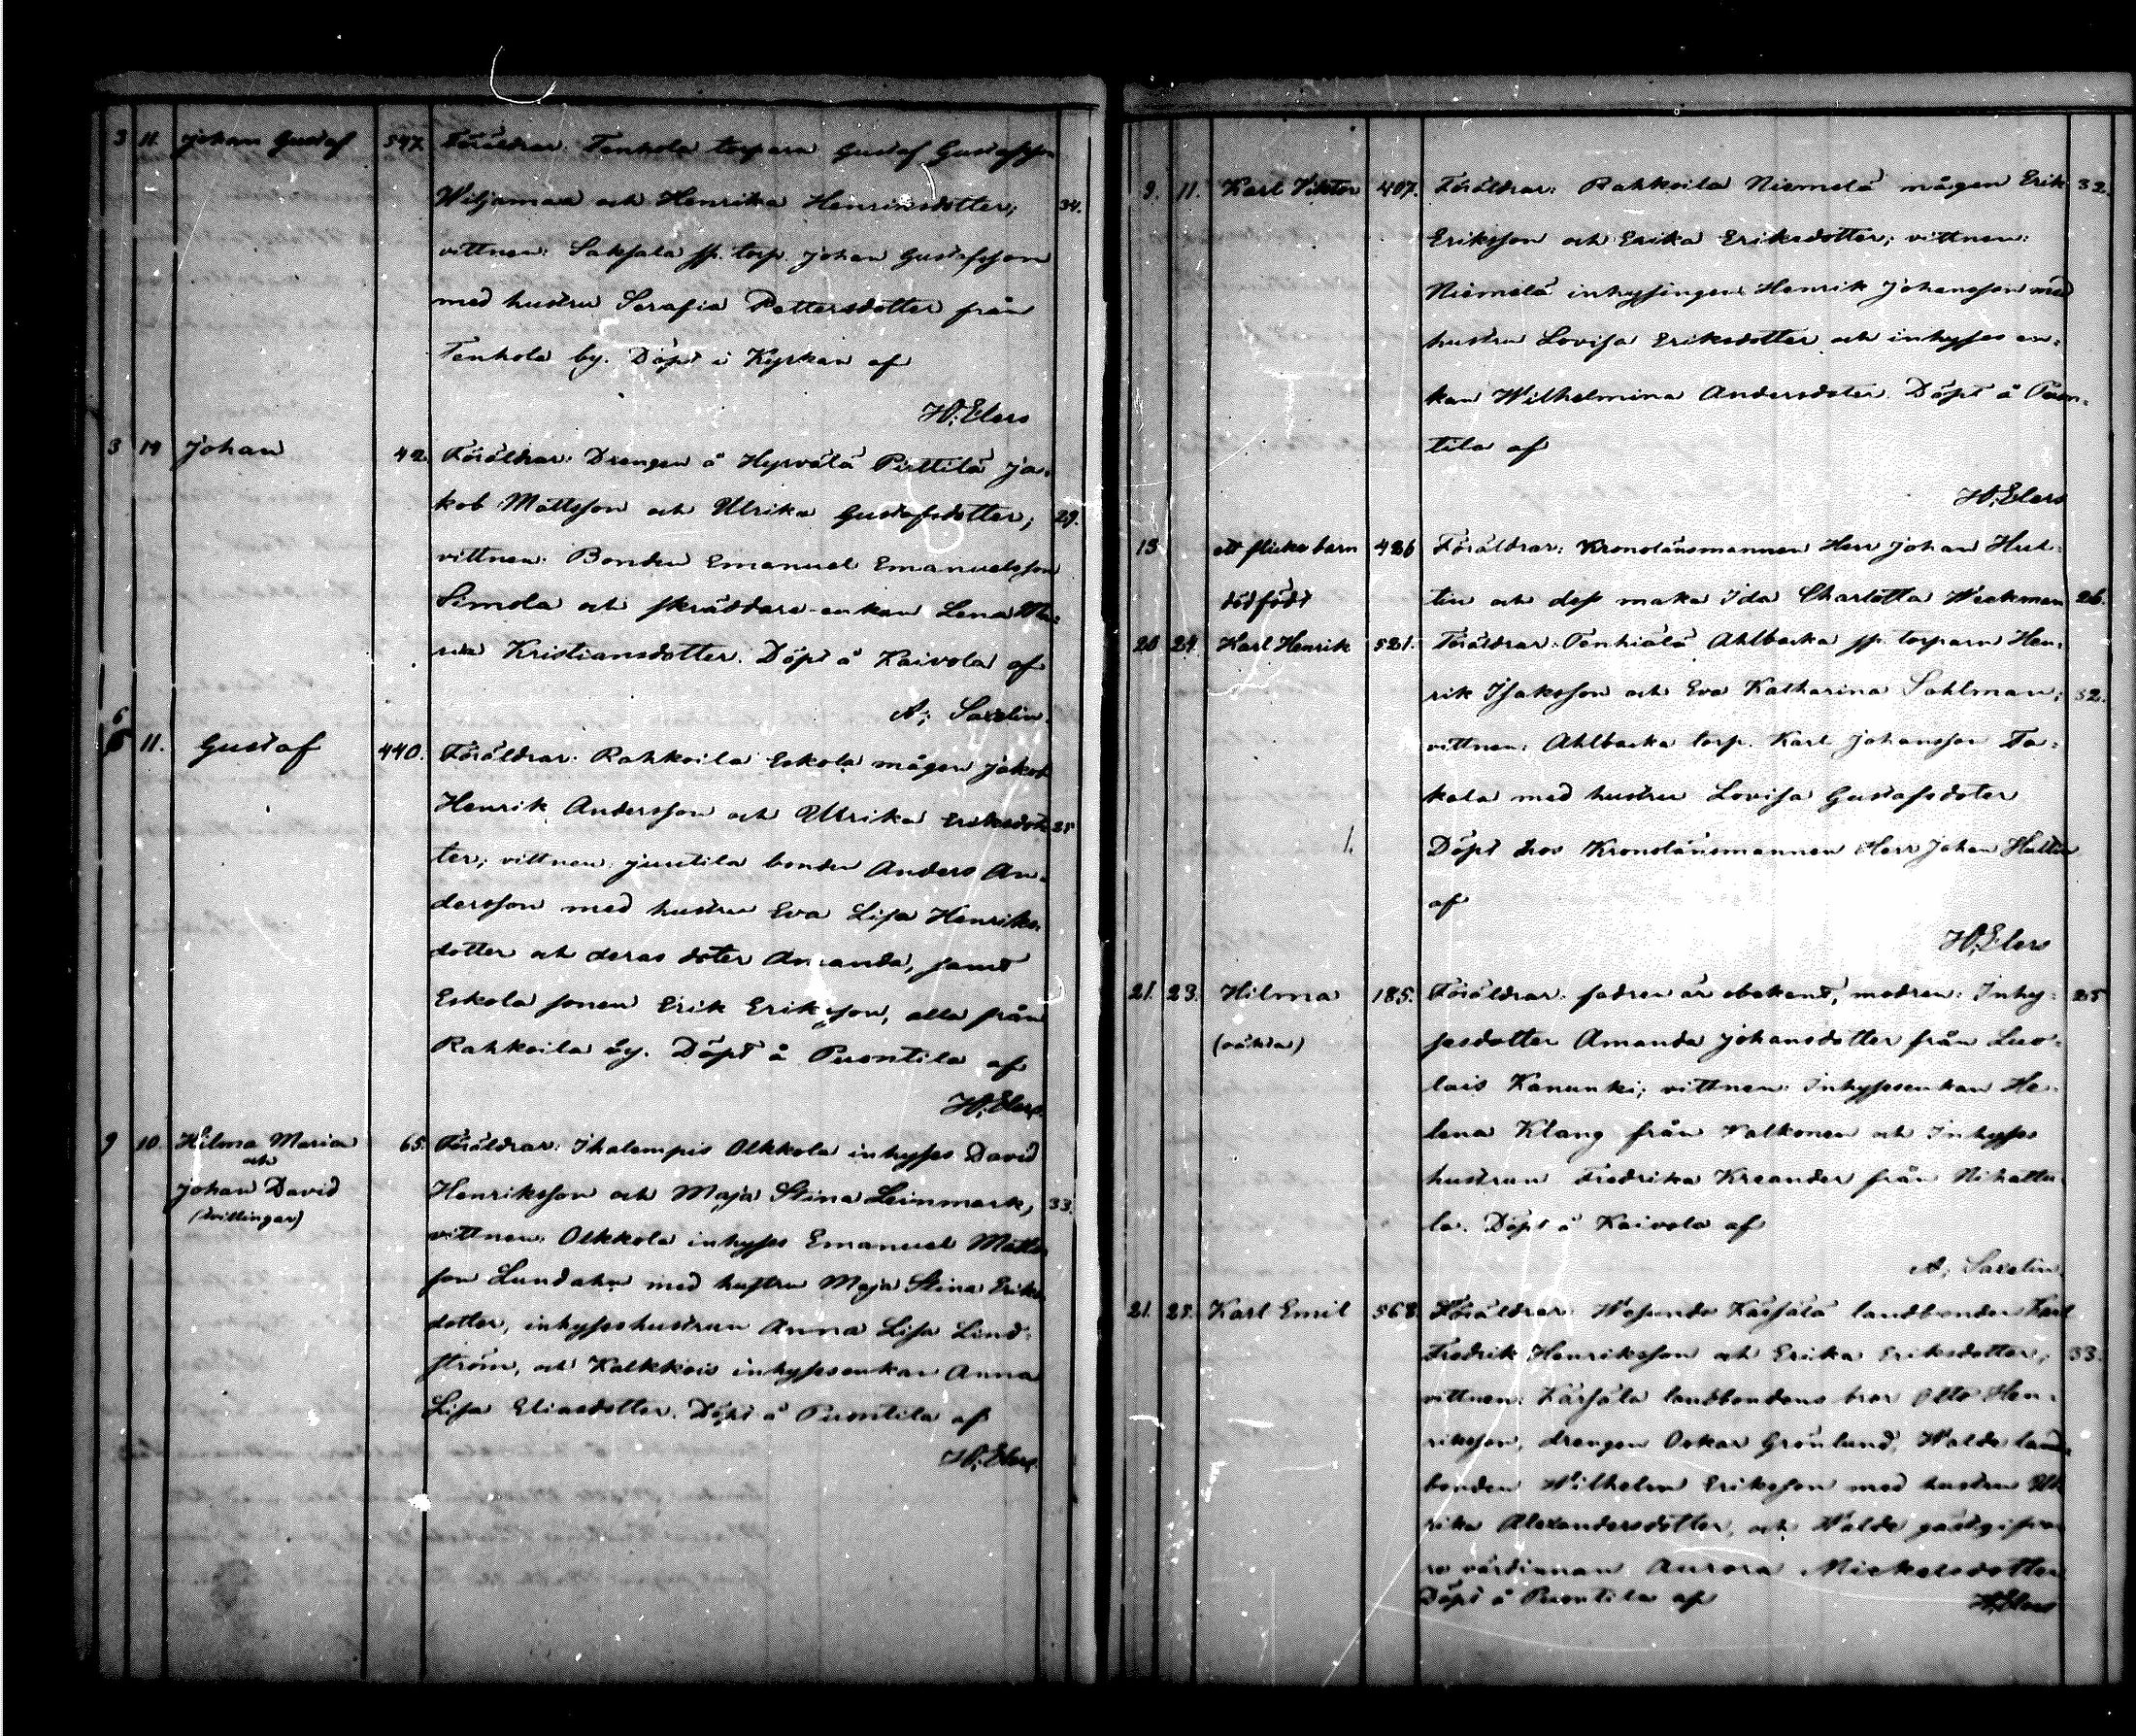 3 11. Johan Gustaf 547. Föräldrar: Tenhola torparn Gustaf Gustafsson
Wiljamaa och Henrika Henriksdotter; 34.
vittnen: Saksala sp. torp. Johan Gustafsson
med hustru Serafia Pettersdotter från
Tenhola by. Döpt i Kyrkan af
H. Elers
3 19 Johan 42. Föräldrar: Drengen å Hyrvälä Pietilä Ja-
kob Mattsson och Ulrika Gustafsdotter; 29.
vittnen: Bonden Emanuel Emanuelsson
Simola och skräddare-enkan Lena Ulri-
rika Kristiansdotter. Döpt å Kaivola af
A; Saxelin.
6 11. Gustaf 440. Föräldrar: Rahkoila Eskola mågen Jakob
Henrik Andersson och Ulrika Eriksdot- 25
ter; vittnen: Junttila bonden Anders An-
dersson med hustru Eva Lisa Henriks-
dotter och deras doter Amanda, samt
Eskola sonen Erik Eriksson, alla från
Rahkoila by. Döpt å Puontila af
H. Elers.
9 10. Hilma Maria 65. Föräldrar: Ihalempis Olkkola inhyses David
och
Johan David Henriksson och Maja Stina Leinmark, 33.
(tvillingar)
vittnen: Olkkola inhyses Emanuel Matts-
son Lundahn med hustru Maja Stina Eriks-
dotter, inhyseshustrun Anna Lisa Lind-
ström, och Kalkkois inhysesenkan Anna
Lisa Eliasdotter. Döpt å Puontila af
H. Elers.
9. 11. Karl Viktor 407. Föräldrar: Rahkoila Niemelä mågen Erik 32.
Eriksson och Erika Eriksdotter; vittnen:
Niemelä inhysingen Henrik Johansson med
hustru Lovisa Eriksdotter och inhyses en-
kan Wilhelmina Andersdoter. Döpt å Puon-
tila af
H. Elers
13 ett flicke barn 426 Föräldrar: Kronolänsmannen Herr Johan Hul-
dödfödt tin och dess maka Ida Charlotta Weckman 26.
20 24. Karl Henrik 521. Föräldrar: Tenhiälä Ahlbacka sp. torparn Hen-
rik Isaksson och Eva Katharina Sahlman; 32.
vittnen: Ahlbacka torp. Karl Johansson Ta-
kala med hustru Lovisa Gustafsdoter
Döpt hos Kronolänsmannen Herr Johan Hultin
af
H. Elers
21. 23. Hilma 185. Föräldrar: fadren är obekant, modren: Inhy- 25
(oäkta) sesdotter Amanda Johansdotter från Luo-
lais Kanunki; vittnen: Inhysesenkan He-
lena Klang från Kalkonen och Inhyses
hustrun Fredrika Kreander från Nihattu-
la. Döpt å Kaivola af
A; Saxelin.
21. 25. Karl Emil 568. Föräldrar: Wesunda Kärjälä landbonden Karl
Fredrik Henriksson och Erika Eriksdotter; 33.
vittnen: Kärjälä landbondens bror Otto Hen-
riksson, drengen Oskar Grönlund, Walde land-
bonden Wilhelm Eriksson med hustru Ul-
rika Alexandersdotter, och Walde gästgifva-
re värdinnan Aurora Mickelsdotter
Döpt å Puontila af H. Elers